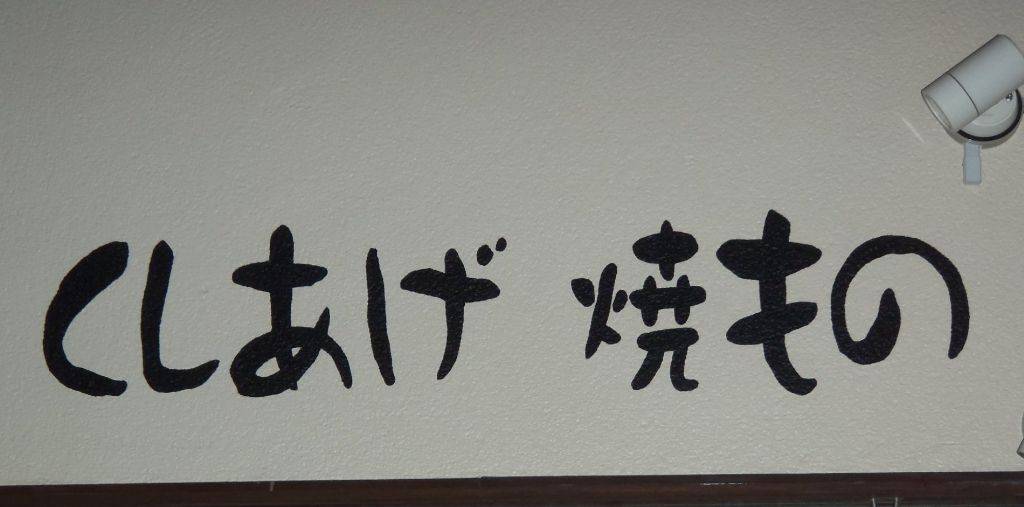 くしあげ 焼もの